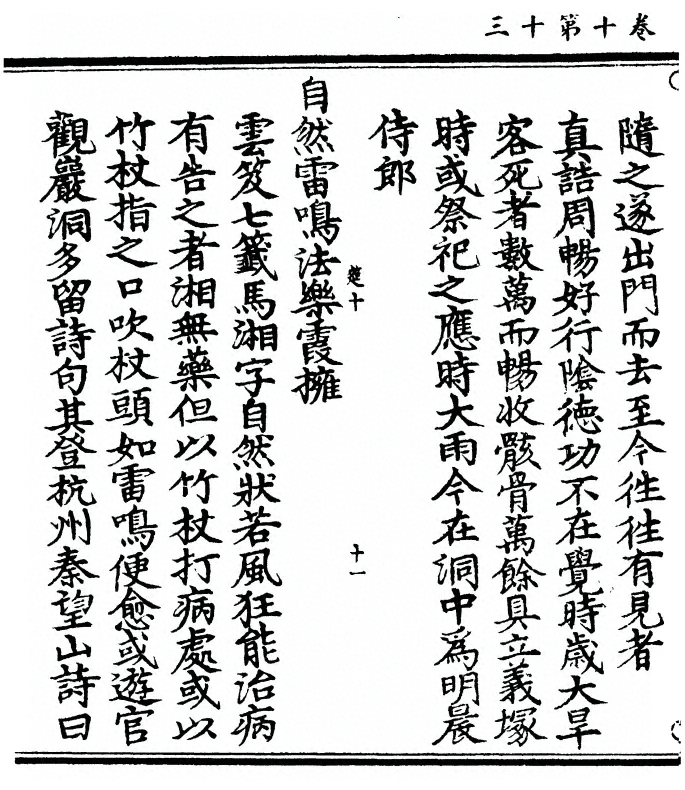 卷十第十三
隨之遂出門而去至今往往有見者
真誥周暢好行陰德功不在覺時歲大旱
客死者數萬而暢收骸骨萬餘具立義塚
時或祭祀之應時大雨今在洞中爲明晨
侍郎
楚十
十一
自然雷鳴法樂霞擁
雲笈七籤馬湘字自然狀若風狂能治病
有告之者湘無藥但以竹杖打病處或以
竹杖指之口吹杖頭如雷鳴便愈或遊官
觀巖洞多留詩句其登杭州秦望山詩曰